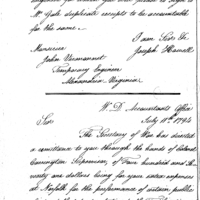 Mr. Gale duplicate receipts to the accountable
for the same.
I am Sir &c.
Joseph Howell
Monsieur
John Vermonnet
Temporary Engineer
Alexandria Virginia
W. D. Accountants Office
July 11th 1794
Sir
The Secretary of War has directed
a remittance to you through the hands of Colonel
Carrington Supervisor, of Four hundred and
twenty one dollars being for your extra expenses
at Norfolk for the performance of certain public